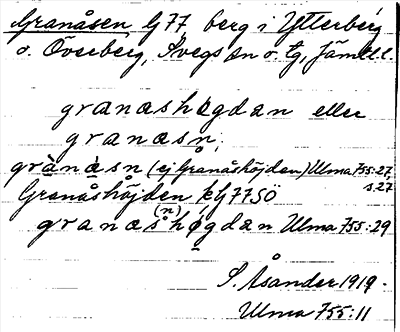 Granåsen G77 berg i Ytterberg
o. Överberg, Svegs sn o. tg, Jämtl. l.
granæshøgdan eller
granæsn̥,
grànæ̀sn (ej Granåshöjden) Ulma 755:27,
s. 27
Granåshöjden kG77SÖ
(n)
granæshǿgdan Ulma 755:29
S. Åsander 1919.
Ulma 755:11